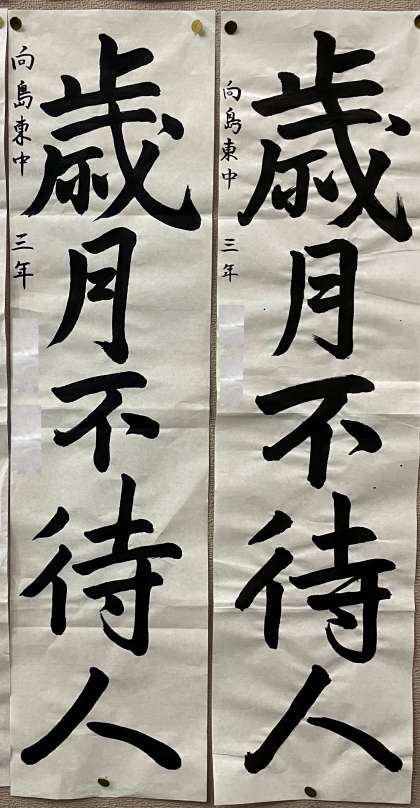 歳月不待人
向島東中 三年
歳月不待人
向島東中 三年